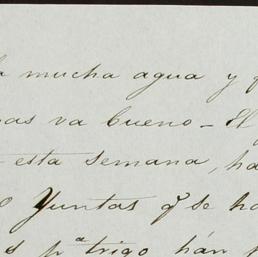 mucha agua y
va bueno - El
esta semana, ha
Yuntas q se ha
pª trigo hán